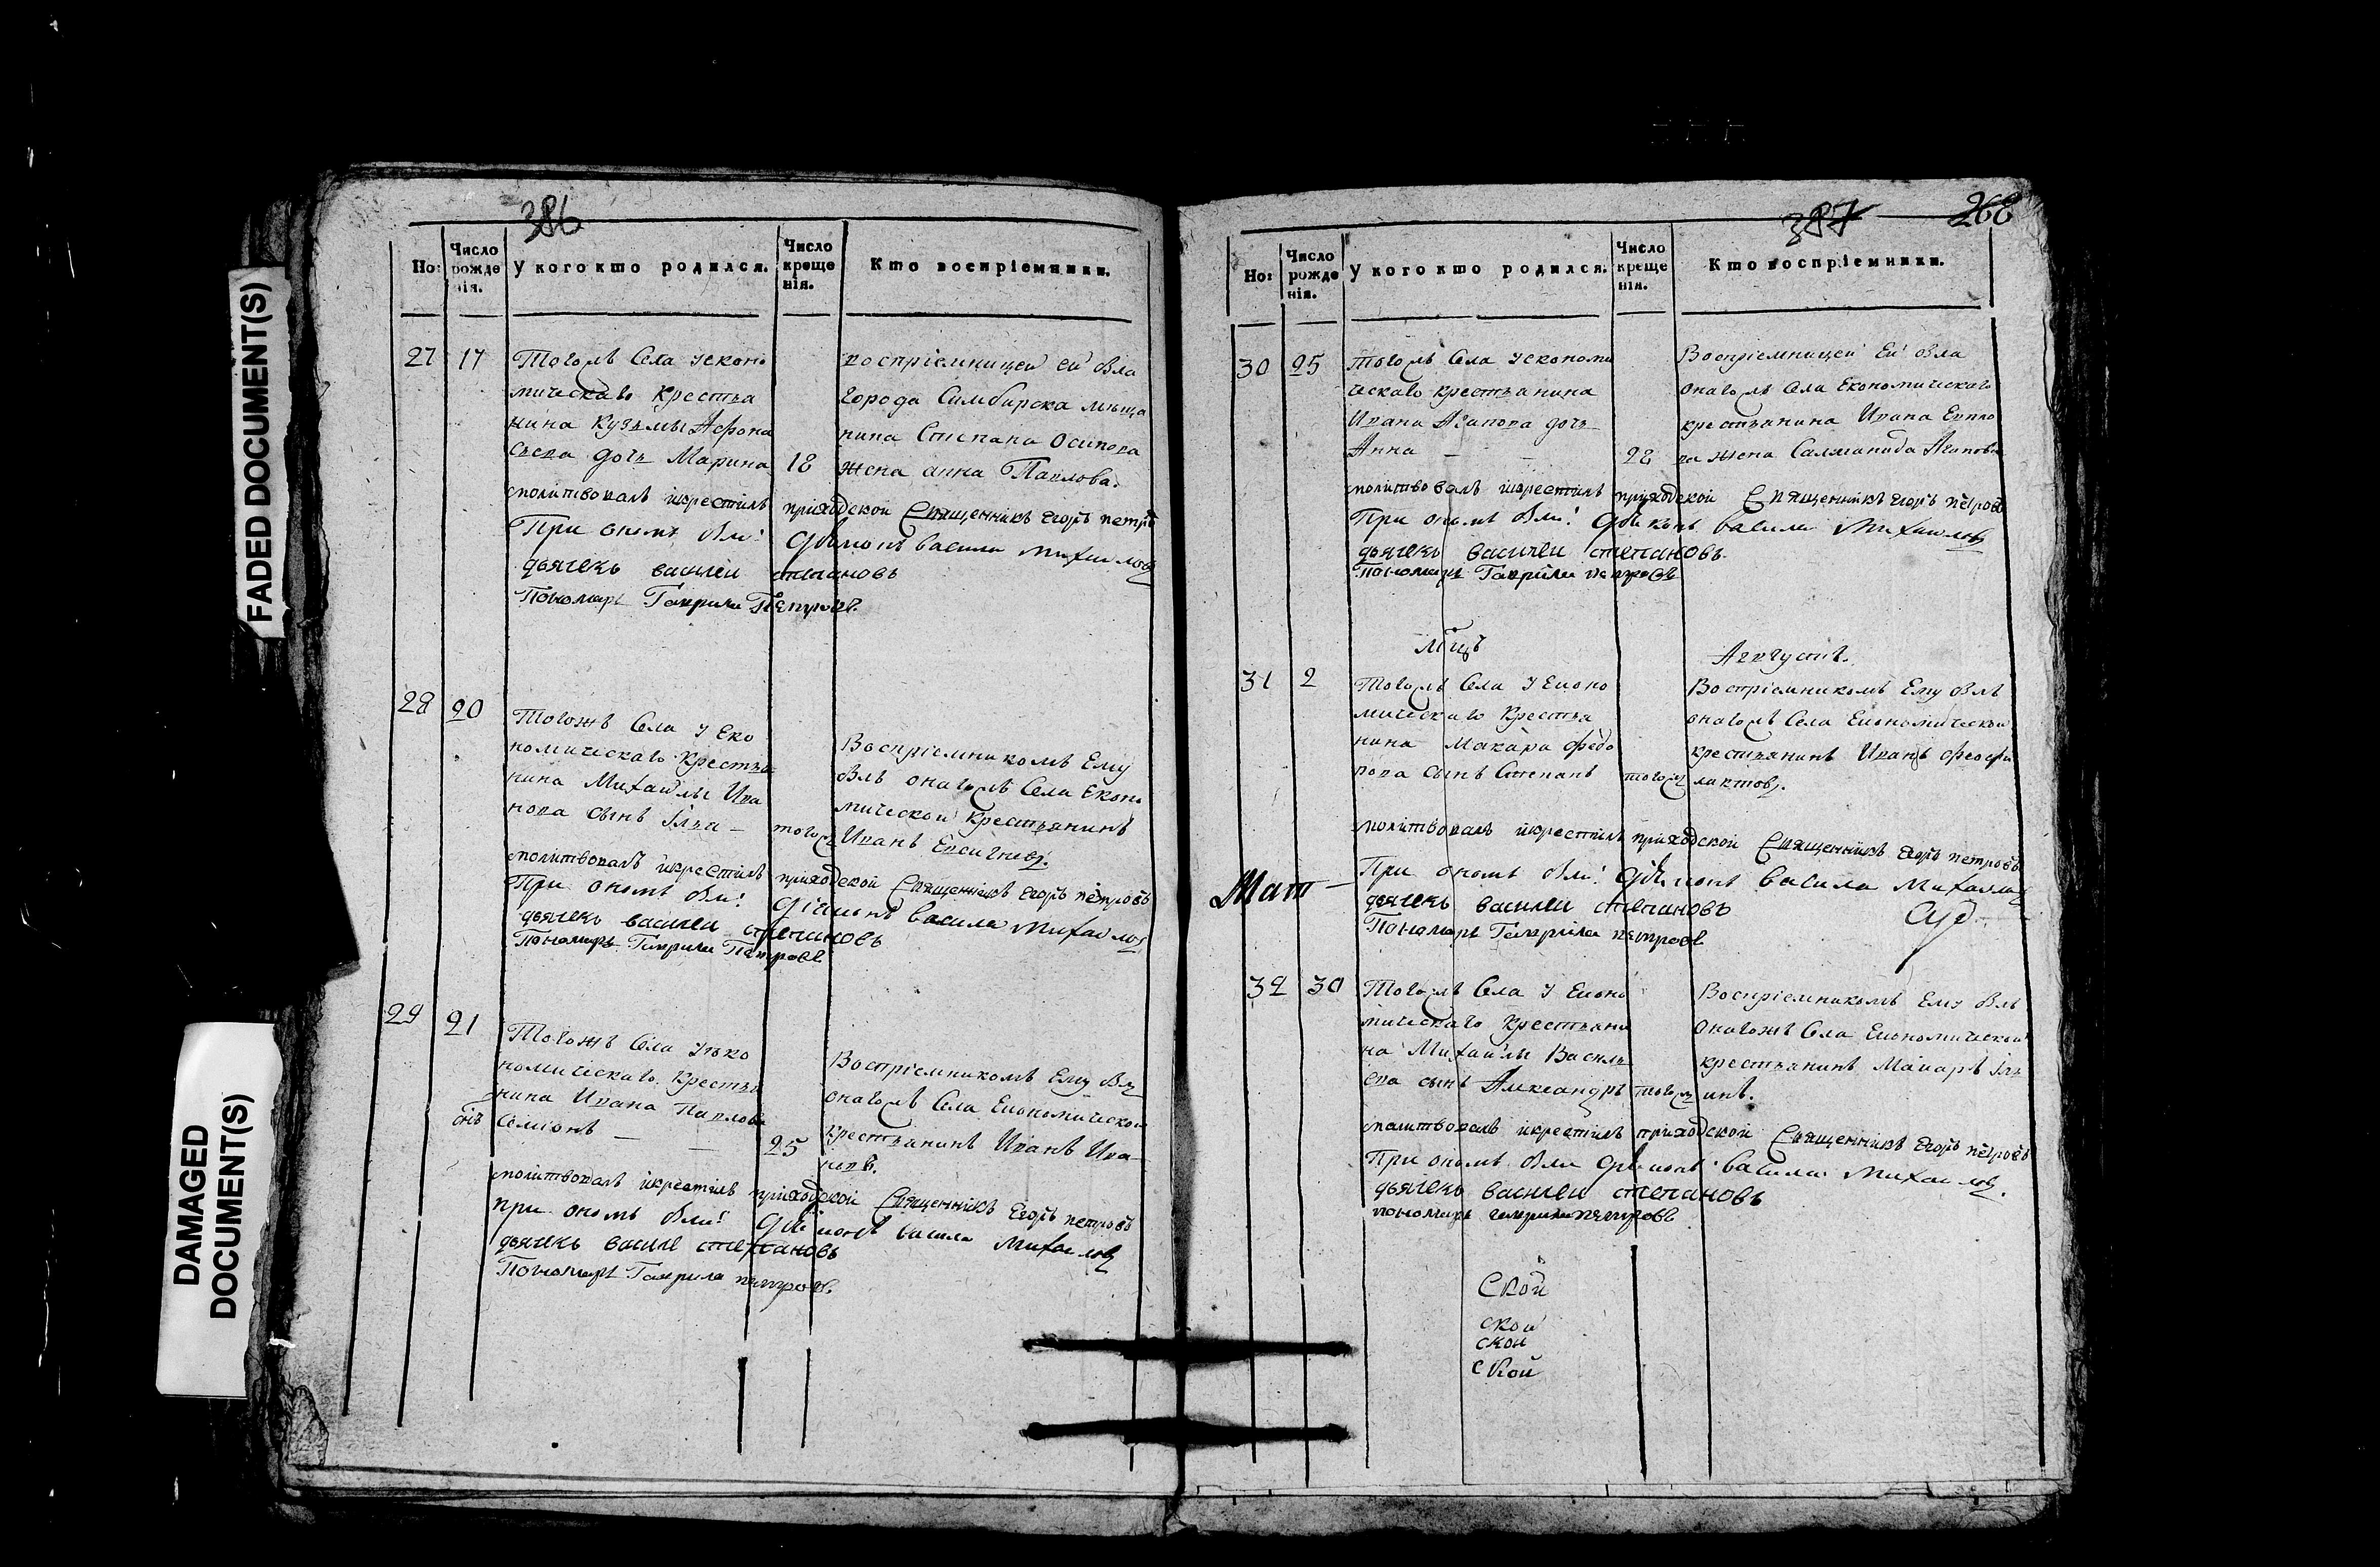 FADED DOCUMENT(S)
DAMAGED
DOCUMENT(S)
386
Но:
Число рожденія.
У кого кто родился.
Число крещенія.
Кто воспріемники.
27 17
Тогожъ Села уеконо
мическаго Крестья
нина Кузьмы Афона
сьева дочь Марина 18
воспріемницей ей была
города Симбирска меща
нина Степана Осипова
жена анна Павлова.
молитвовалъ икрестилъ приходской Священникъ Егоръ петровъ
При ономъ были: Діаконъ Василий Михайловъ
дьячекъ василей степановъ
Пономарь Гаврила Петровъ.
28 20
Тогожъ Села у Еко
номическаго Крестья
нина Михайлы Ива
нова сынъ Илья — тогожъ
Воспріемникомъ Ему
былъ оногожъ Села Еконо
мической Крестьянинъ
Иванъ Евсигневъ.
молитвовалъ икрестилъ приходской Священникъ Егоръ петровъ
При ономъ были: Діаконъ Василий Михайловъ
дьячекъ василей степановъ
Пономарь Гаврила Петровъ
29 21
Тогожъ Села уеко
номическаго Крестья
нина Ивана Павлова
снъ Семіонъ — — 25
Воспріемникомъ Ему былъ
оногожъ Села Економической
крестьянинъ Иванъ Ива
новъ.
молитвовалъ икрестилъ приходской Священникъ Егоръ петровъ
при ономъ были: Діаконъ васили Михайловъ
дьячекъ василе степановъ
Пономарь Гаврила петровъ.
387 268
Но:
Число рожденія.
У кого кто родился.
Число крещенія.
Кто воспріемники.
30 25
тогожъ Села уекономи
ческаго крестьянина
Ивана Агапова дочь
Анна — — 28
Воспріемницей Ей была
оногожъ Села Економическаго
крестьянина Ивана Евпло
ва жена Саломанида Агапова
молитвовалъ икрестилъ приходской Священникъ Егоръ петровъ
При ономъ были: Діаконъ васили Михайловъ
дьячекъ василеи степановъ.
Пономарь Гаврила петровъ
мцъ Августъ.
31 2
тогожъ Села у Еконо
мическаго Крестья
нина Макара Федо
рова сынъ Степанъ тогожъ
Воспріемникомъ Ему былъ
оногожъ Села Економической
крестьянинъ Иванъ Феофи
лактовъ.
молитвовалъ икрестилъ приходской Священникъ Егоръ петровъ
При ономъ были: Діаконъ васили Михайловъ
дьячекъ василеи степановъ
Пономарь Гаврила петровъ
32 30
Тогожъ Села у Еконо
мическаго крестьяни
на Михайлы Василь
ева сынъ Александръ тогожъ
Воспріемникомъ Ему былъ
оногожъ Села Економической
крестьянинъ Макаръ Иль
инъ.
молитвовалъ икрестилъ приходской Священникъ Егоръ петровъ
При ономъ были Діаконъ Васили Михайловъ.
дьячекъ василеи степановъ
пономарь гаврила петровъ
Ской
ской
ской
Ской